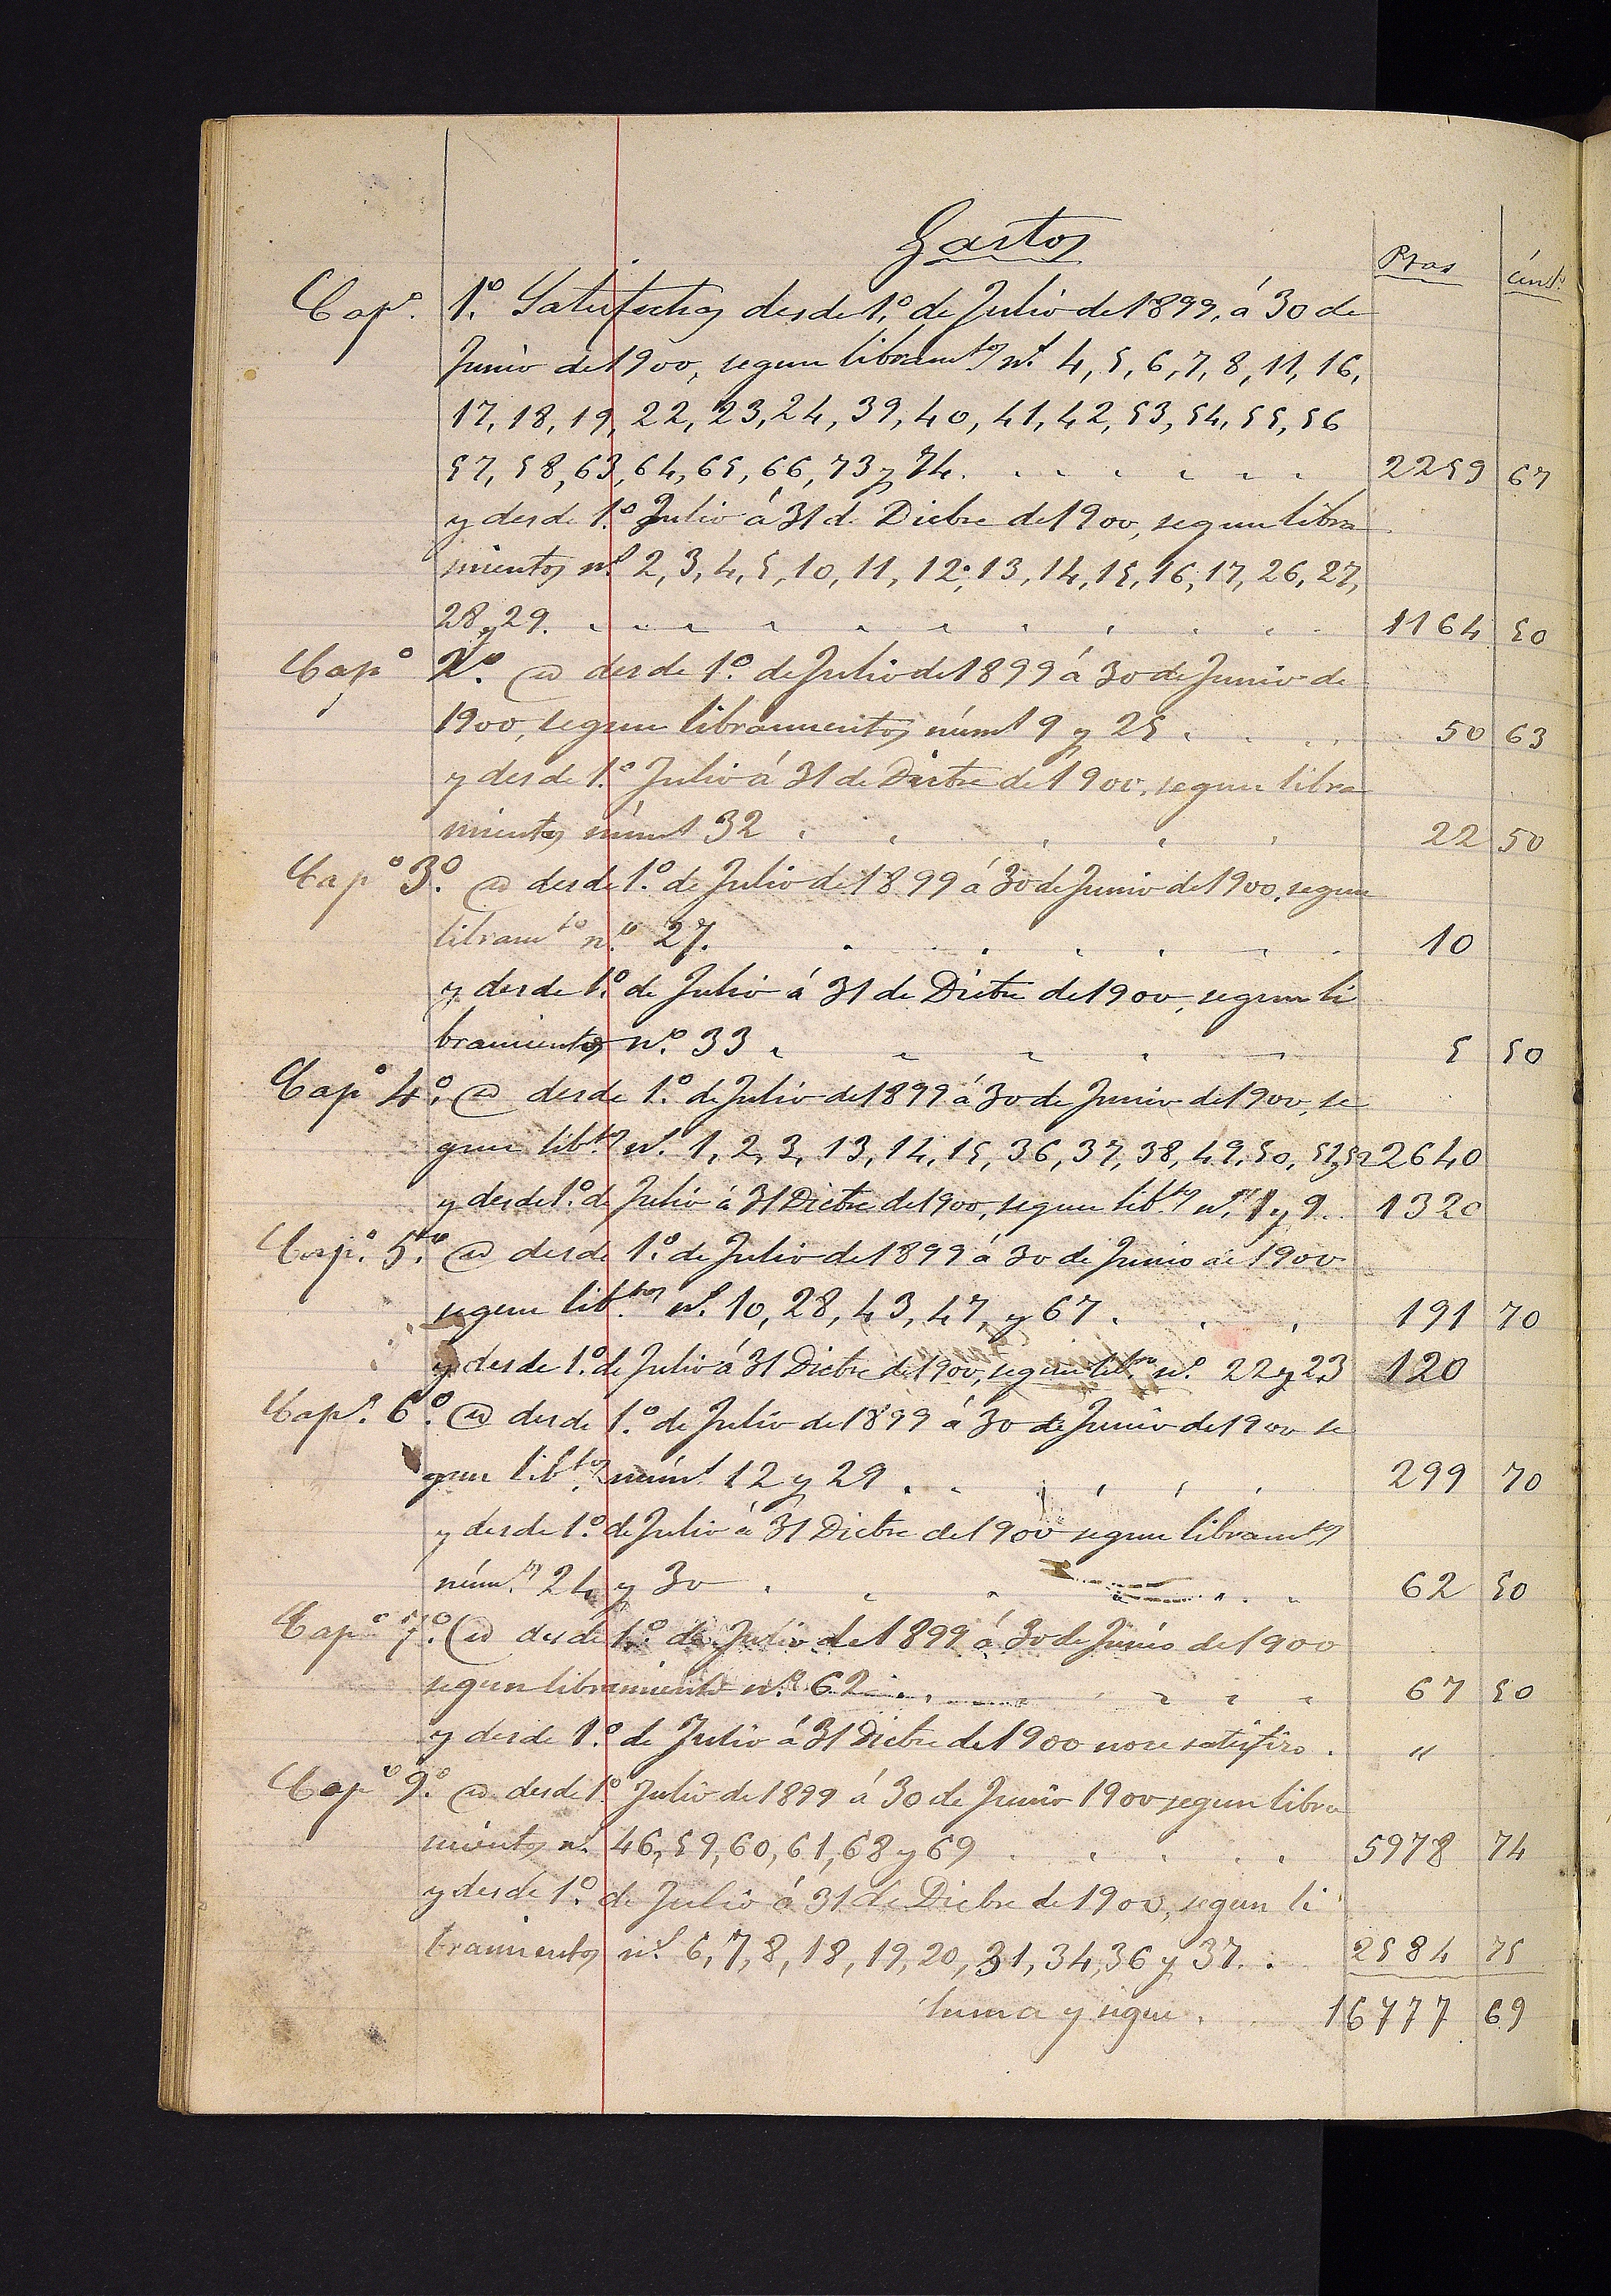 Gastos
Ptas cénts
Capº. 1º. Satisfechos desde 1º. de Julio de 1899, á 30 de
Junio de 1900, segun libramtos ns. 4, 5, 6, 7, 8, 11, 16,
17, 18, 19, 22, 23, 24, 39, 40, 41, 42, 53, 54, 55, 56
57, 58, 63, 64, 65, 66, 73 y 74. . . . . . . 2259 67
y desde 1.º Julio á 31 de Dicbre de 1900, segun libra
mientos ns. 2, 3, 4, 5, 10, 11, 12, 13, 14, 15, 16, 17, 26, 27,
28 y 29. . . . . . . . . . . 1164 50
Capº 2º. @ desde 1º. de Julio de 1899 á 30 de Junio de
1900, segun libramientos núms 9 y 25 . . . . 50 63
y desde 1.º Julio á 31 de Dicbre de 1900, segun libra
mientos núms 32 . . . . . 22 50
Capº 3º. @ desde 1º. de Julio de 1899 á 30 de Junio de 1900, segun
libramto nº 27. . . . . . . 10
y desde 1º. de Julio á 31 de Dicbre de 1900, segun li
bramientos nº. 33 . . . . . 5 50
Capº 4º. @ desde 1º. de Julio de 1899 á 30 de Junio de 1900, se
gun libtos ns. 1, 2, 3, 13, 14, 15, 36, 37, 38, 49, 50, 51 y 52 2640
y desde 1º. de Julio á 31 Dicbre de 1900, segun libtos ns. 1 y 9 . . 1320
Capº. 5º. @ desde 1º. de Julio de 1899 á 30 de Junio de 1900
segun libtos ns. 10, 28, 43, 47, y 67 . . . 191 70
y desde 1º. de Julio á 31 Dicbre de 1900, segun libtos ns. 22 y 23 120
Capº. 6º. @ desde 1º. de Julio de 1899 á 30 de Junio de 1900 se
gun libtos núms 12 y 29 . . . . . 299 70
y desde 1º. de Julio á 31 Dicbre de 1900 segun libramtos
núms. 24 y 30 . . . . . . 62 50
Capº 7º. @ desde 1º. de Julio de 1899 á 30 de Junio de 1900
segun libramiento nº. 62 . . . . . . 67 50
y desde 1º. de Julio á 31 Dicbre de 1900 no se satisfizo . "
Capº 9º. @ desde 1º Julio de 1899 á 30 de Junio 1900 segun libra
mientos ns. 46, 59, 60, 61, 68 y 69 . . . . . 5978 74
y desde 1º. de Julio á 31 de Dicbre de 1900, segun li
bramientos ns. 6, 7, 8, 18, 19, 20, 31, 34, 36 y 37. . 2584 75
Suma y sigue . 16777 69